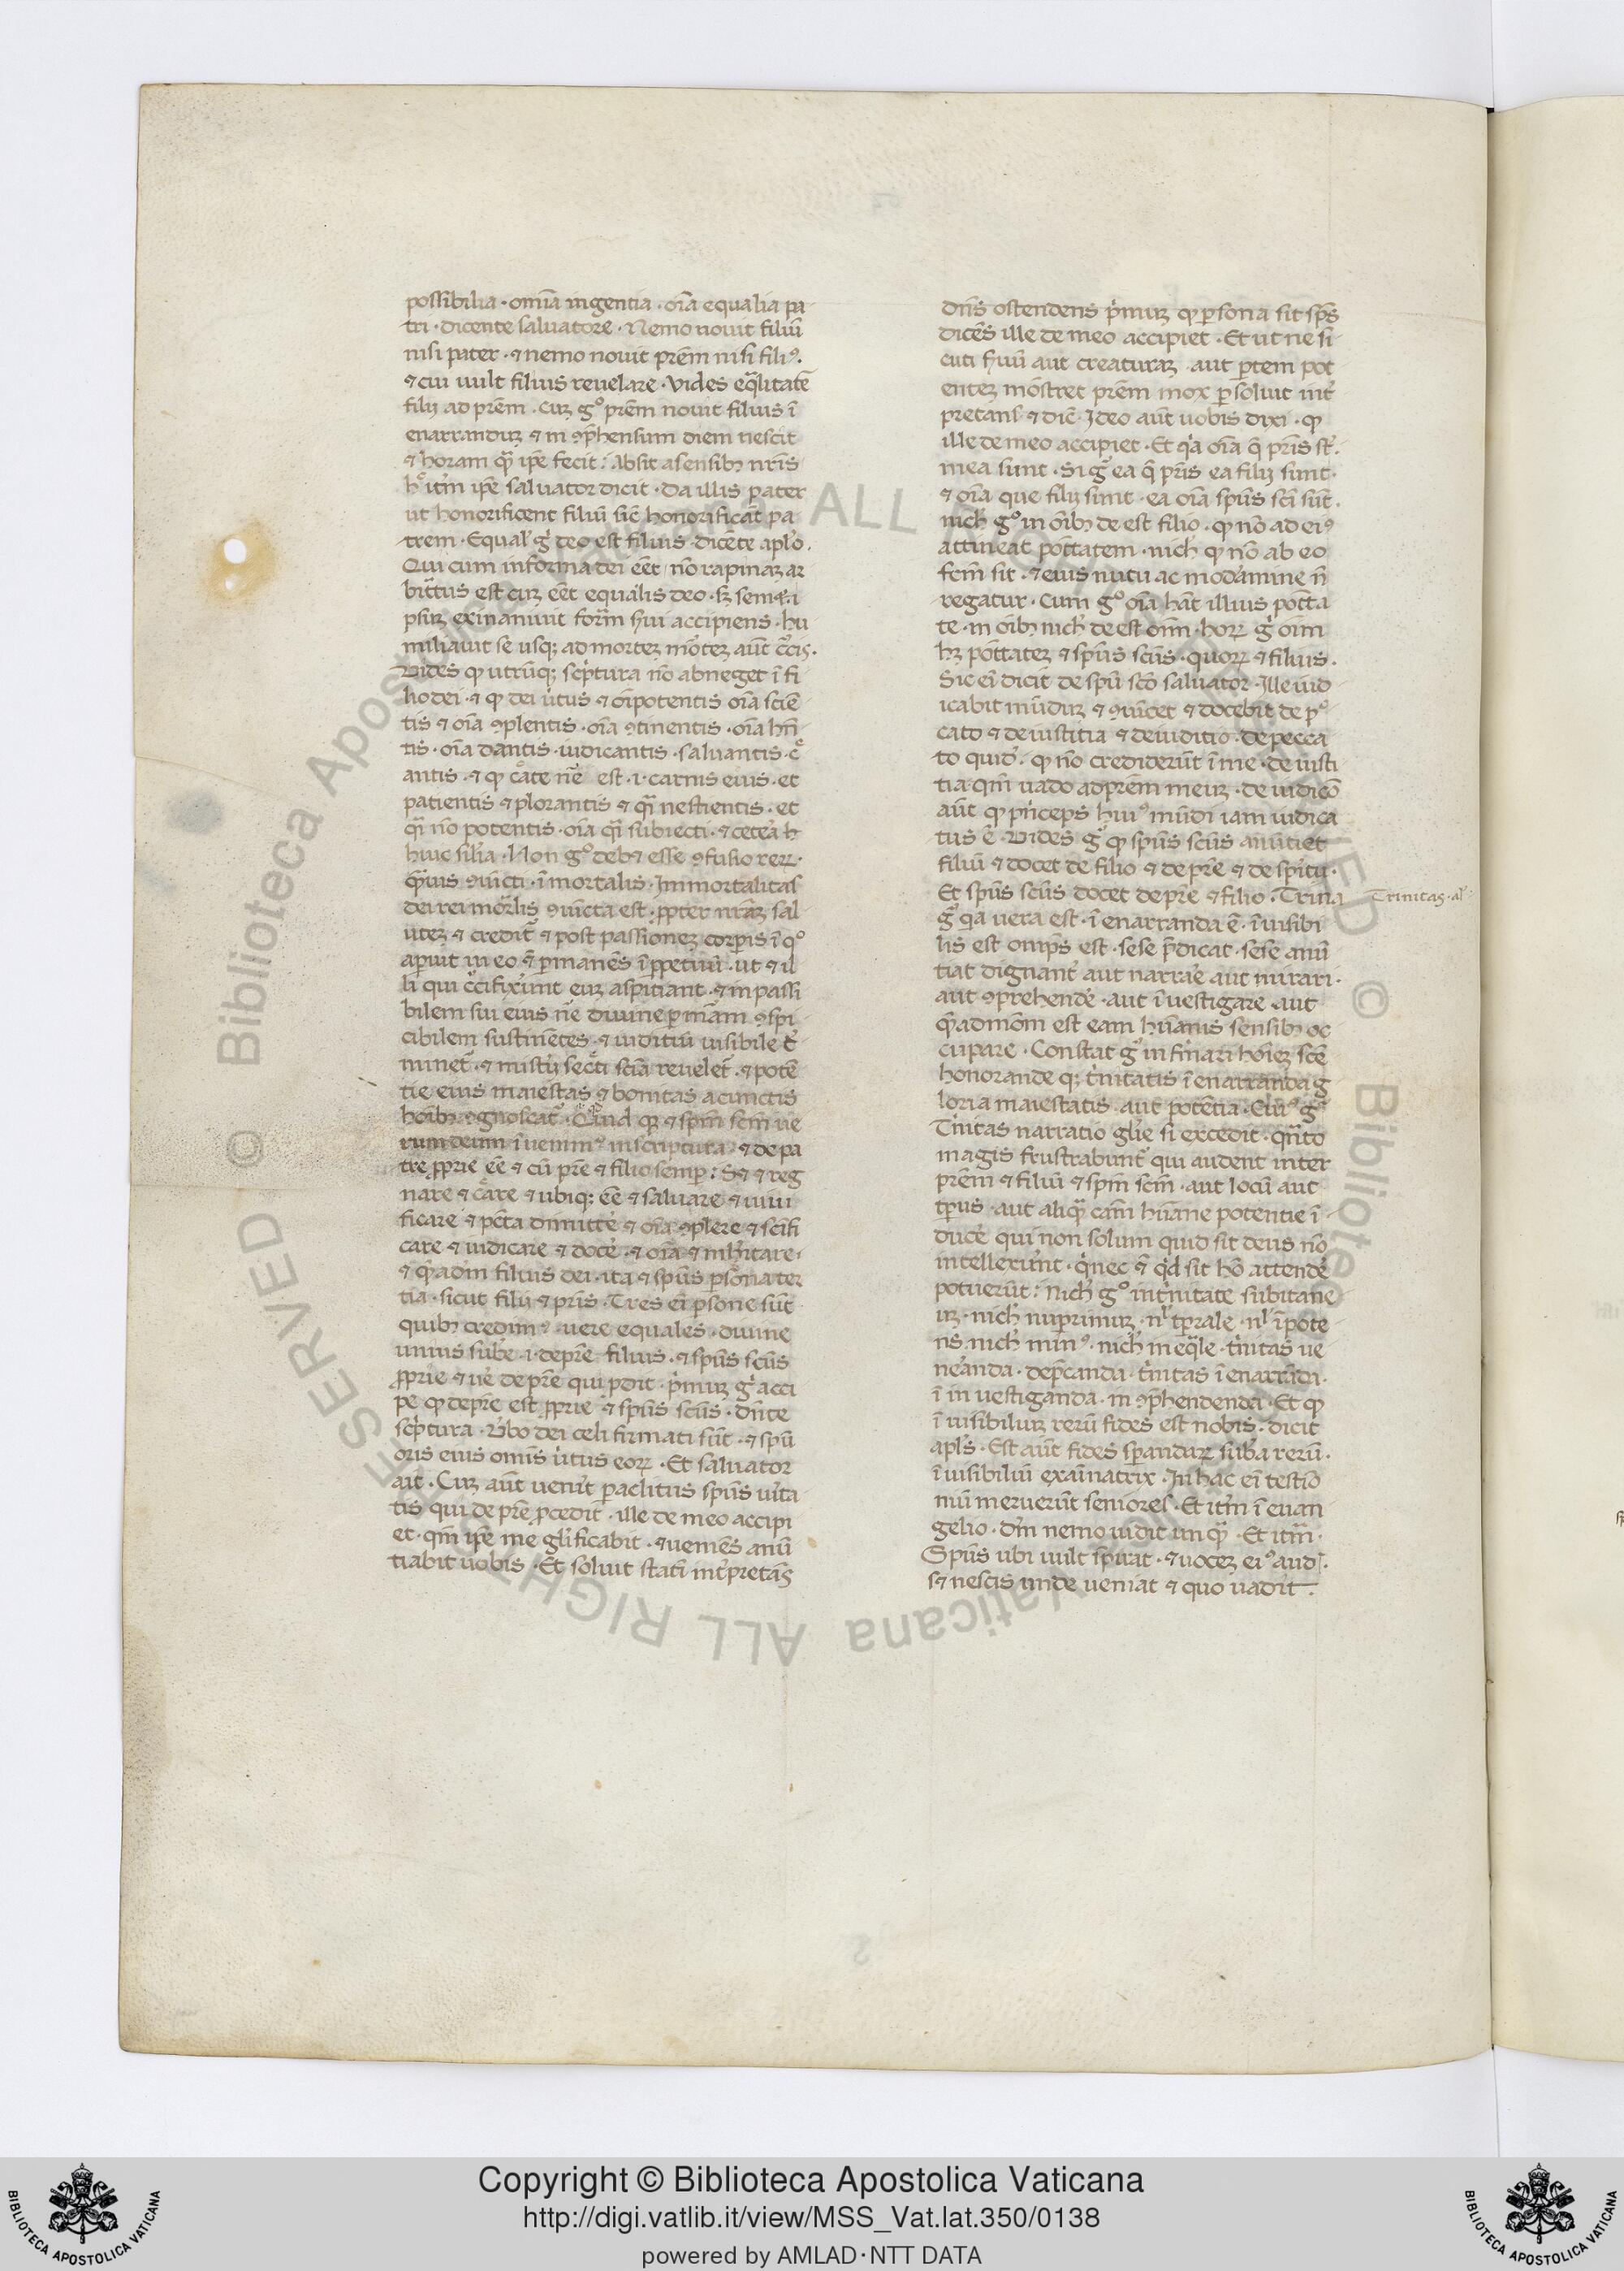 possibilia · omia ingentia · oia equalia pa
tri · dicente saluatore · Nemo nouit filiū
nisi pater · ⁊ nemo nouit prēm nisi filiꝰ ·
⁊ cui uult filius reuelare · Vides eqͣlitatē
filij ad prēm · Cuꝫ gͦ prēm nouit filius ī
enarranduꝫ ⁊ in ꝯp̄hensum diem nescit
⁊ horam qͣ ip̄e fecit : Absit a sensibꝫ nr̄is
ip̄e saluator dicit · Da illis pater
ut honorificent filiū sic̄ honorificāt pa
trem · Equal̓ g̓ deo est filius · dicēte aplo ·
Qui cum in forma dei eēt nō rapinaꝫ ar
bitᷓtus est cuꝫ eēt equalis deo · sꝫ semet i
psuꝫ exinaniuit formᷓ s̓ui accipiens · hu
miliauit se usqꝫ ad morteꝫ mōteꝫ aūt cͬcis ·
Vides ꝙ utrūqꝫ scp̓tura nō abneget ī fi
lio dei · ⁊ ꝙ dei u̓tus ⁊ oīpotentis oīa sciē
tis ⁊ oīa ꝯplentis · oīa ꝯtinentis · oīa hn̄
tis · oīa dantis · iudicantis · saluantis · cͤ
antis · ⁊ ꝙ cͤate nē est · i · carnis eius · et
patientis ⁊ plorantis ⁊ qͣ nescientis · et
qͣ nō potentis · oīa qͣ subiecti · ⁊ cetea h
huic silia · Non gͦ debꝫ esse ꝯfusio reꝝ ·
ꝯiūcti · ī mortalis · Immortalitas
dei rei mor̄lis ꝯiūcta est · ꝓpter nrāꝫ sal
uteꝫ ⁊ credit̄ ⁊ post passioneꝫ corꝑis ī qͦ
aparuit in eo ⁊ ꝑmanēs ī ꝑpetuū · ut ⁊ il
li qui cͬcifixeunt euꝫ aspitiant · ⁊ inpassi
bilem sui eius nē diuine ꝑmāam ꝯspi
cibilem sustinētes · ⁊ iuditiū uisibile t̓
minet̄ · ⁊ mistij secͬti sciā reuelet̄ · ⁊ potē
tie eius maiestas ⁊ bonitas a cunctis
hoībꝫ ꝯgnoscat̄ · Qͥd qꝫ ⁊ spm̄ scm̄ ue
rum deum ī uenimꝰ in scriptura · ⁊ de pa
tre ꝓprie eē ⁊ cū pr̄e ⁊ filio semꝑ : Sꝫ ⁊ reg
nare ⁊ cͤare ⁊ ubiqꝫ eē ⁊ saluare ⁊ uiui
ficare ⁊ pctā dimitte̓ ⁊ oīa ꝯplere ⁊ scīfi
care ⁊ iudicare ⁊ doce̓ · ⁊ oīa ⁊ inhitare ·
⁊ qͣadm̄ filius dei · ita ⁊ spūs ꝑsona ter
tia · sicut filij ⁊ pr̄is · Tres eī ꝑsone sūt
quibꝫ credimꝰ · uere equales · diuine
unius sube · i · de pr̄e · filius · ⁊ spūs scūs
ꝓprie ⁊ ue̓ de pr̄e qui ꝓdit · p̓muꝫ g̓ acci
pe ꝙ de pr̄e est ꝓprie · ⁊ spūs scūs · dn̄te
scp̓tura · V̓bo dei celi firmati sūt · ⁊ spū
oris eius omīs u̓tus eoꝝ · Et saluator
ait · Cuꝫ aūt uenit ꝑaclitus spūs uīta
tis qui de pr̄e ꝓcedit · ille de meo accipi
et · qm̄ ip̄e me glīficabit · ⁊ ueniēs anū
tiabit uobis · Et soluit stati int̓pretāS
dn̄s ostendens p̓muꝫ ꝙ ꝑsona sit spūs
dicēs ille de meo accipiet · Et ut ne si
cuti s̓uū aut creaturaꝫ · aut ꝑtem pot
enteꝫ mōstret prēm mox ꝑsoluit int̓
pretans ⁊ dic̄ · Ideo aūt uobis dixi · ꝙ
ille de meo accipiet · Et qͥa oīa q̄ pr̄is st̄ ·
mea sunt · Si g̓ ea q̄ pr̄is ea filij sunt ·
⁊ oīa que filij sunt · ea oīa spūs scī sūt ·
nich̓ gͦ in oībꝫ de est filio · ꝙ nō ad eiꝰ
attineat pōttatem · nich̓ ꝙ nō ab eo
fcm̄ sit · ⁊ eius nutu ac modamine n̄
regatur · Cum gͦ oīa hāt illius potta
te · in oībꝫ nich̓ de est oīm · hoꝝ g̓ oīm
hꝫ pottateꝫ ⁊ spūs scūs · quoꝝ ⁊ filius ·
Sic eī dicit de spū scō saluator · Ille iud
icabit mūduꝫ ⁊ ꝯuīcet ⁊ docebit de pͦ
cato ⁊ de iustitia ⁊ de iuditio · de pecca
to quid̓ · ꝙ nō crediderūt ī me · de iusti
tia · qm̄ uado ad prēm meuꝫ · de iudicō
aūt ꝙ p̓nceps huiꝰ mūdi iam iudica
tus ē · Vides g̓ ꝙ spūs scūs anūtiet
filiū ⁊ docet de filio ⁊ de pr̄e ⁊ de spū ·
Et spūs scūs docet de pr̄e ⁊ filio · Trina
Trinitas · al̓
g̓ qͥa uera est · ī enarranda ē · ī uisibi
lis est · sese p̄dicat · sese anū
tiat dignant̓ aut narrae aut mirari ·
aut ꝯprehende̓ · aut ī uestigare aut
qͣadmōm est eam hūanis sensibꝫ oc
cupare · Constat g̓ infinari hoīeꝫ scē
honorande qꝫ t̓nitatis ī enarranda g
loria maiestatis · aut potētia · Cuiꝰ g̓
T̓nitas narratio glīe si excedit · qn̄to
magis frustrabunt̄ qui audent inter
prēm ⁊ filiū ⁊ spm̄ scm̄ · aut locū aut
tp̄us · aut aliqͣ cām hūane potentie ī
duce̓ qui non solum quid sit deus nō
intellexeunt · qͥ nec ⁊ qͥd sit hō attende̓
potuerūt : Nich̓ gͦ in t̓nitate subitane
uꝫ · nich̓ nuꝑrimuꝫ · nͥl tꝑrale · nͥl īpote
ns · nich̓ minꝰ · nich̓ ineqͣle · t̓nitas ue
neanda · dep̄canda · t̓nitas ī enarrāda ·
ī in uestiganda · in ꝯp̄hendenda · Et ꝙ
ī uisibiluꝫ rerū fides est nobis · dicit
apl̄s · Est aūt fides sꝑanduꝝ suba rerū ·
ī uisibiliū exaīnatrix · In hac eī testīo
niū meruerūt seniores · Et itm̄ ī euan
gelio · dm̄ nemo uidit unqͣ · Et itm̄ ·
Spūs ubi uult spirat · ⁊ uoceꝫ eiꝰ aud ·
sꝫ nescis unde ueniat ⁊ quo uadit ·
Copyright © Biblioteca Apostolica Vaticana
http://digi.vatlib.it/view/MSS_Vat.lat.350/0138
powered by AMLAD·NTT DATA